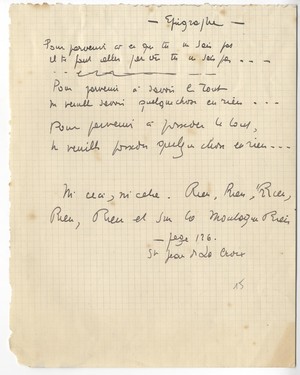 — Epigraphe —
Pour parvenir à ce que tu ne sais pas
il te faut aller par où tu ne sais pas . . .
Pour parvenir à savoir le Tout
ne veuille savoir quelque chose en rien . . .
Pour parvenir à posséder le tout,
ne veuille posséder quelque chose en rien . . .
Ni ceci, ni cela. Rien, Rien, Rien,
Rien, Rien et sur la Montagne Rien
— page 196.
St Jean de la Croix